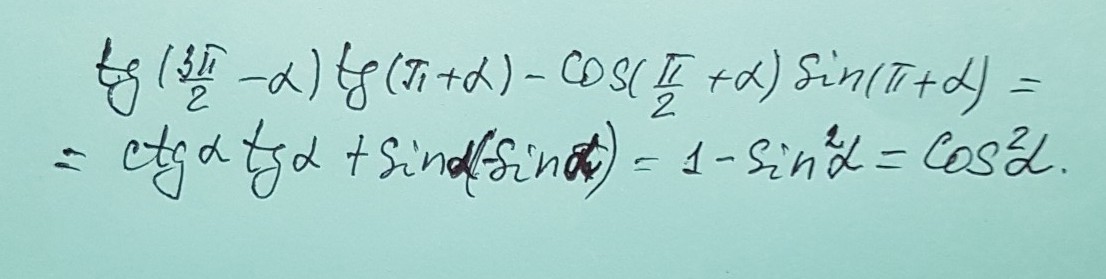 tg(3π/2 - α) tg(π+α) - cos(π/2 + α) sin(π+α) =
= ctgα tgα + sinα(-sinα) = 1 - sin²α = cos²α.